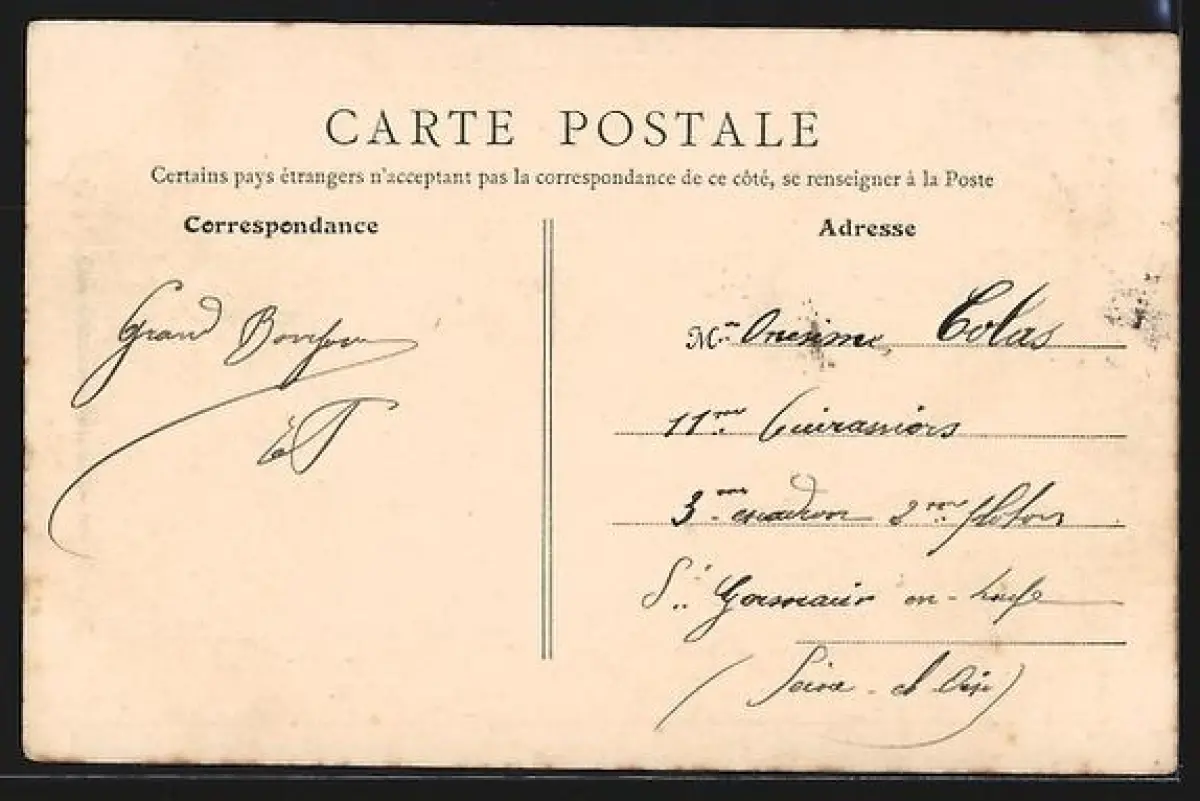 CARTE POSTALE
Certains pays étrangers n'acceptant pas la correspondance de ce côté, se renseigner à la Poste
Correspondance
Adresse
Grand Bonjour
ET
M. Onésime Colas
11me Cuirassiers
3me escadron 2me peloton
St Germain en-Laye
(Seine-et-Oise)